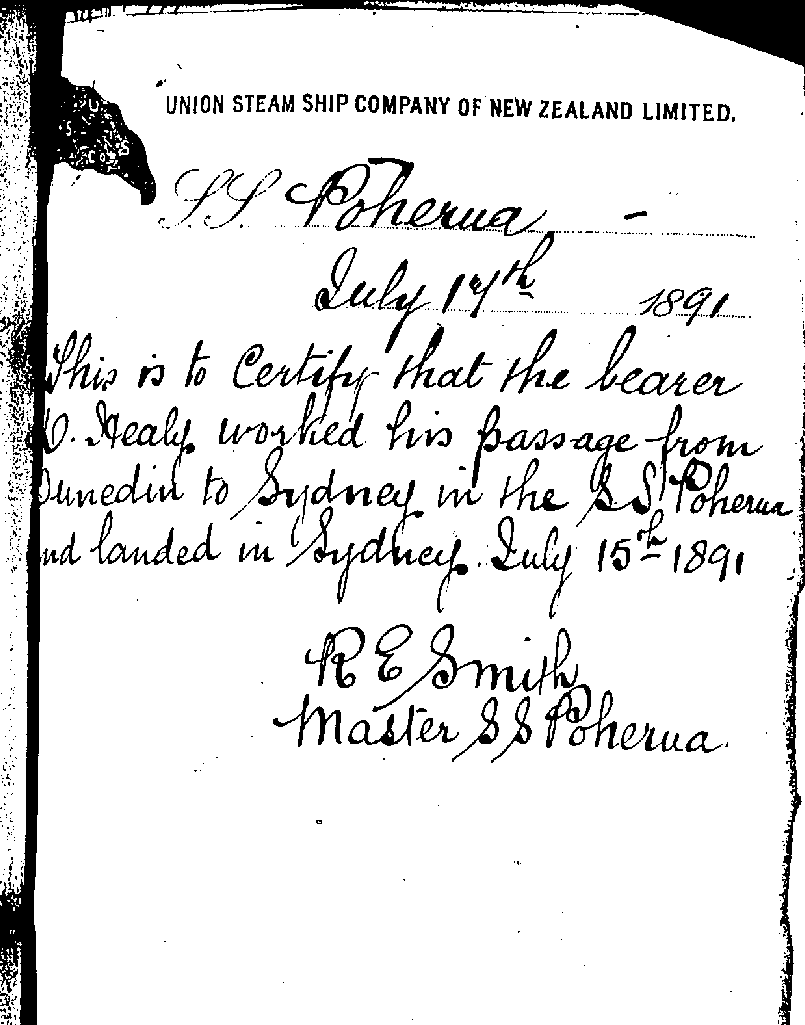 UNION STEAM SHIP COMPANY OF NEW ZEALAND LIMITED.
S.S. Poherua -
July 17th 1891
This is to Certify that the bearer
D. Healy worked his passage from
Dunedin to Sydney in the S S Poherua
and landed in Sydney. July 15th 1891
R E Smith
Master S S Poherua.